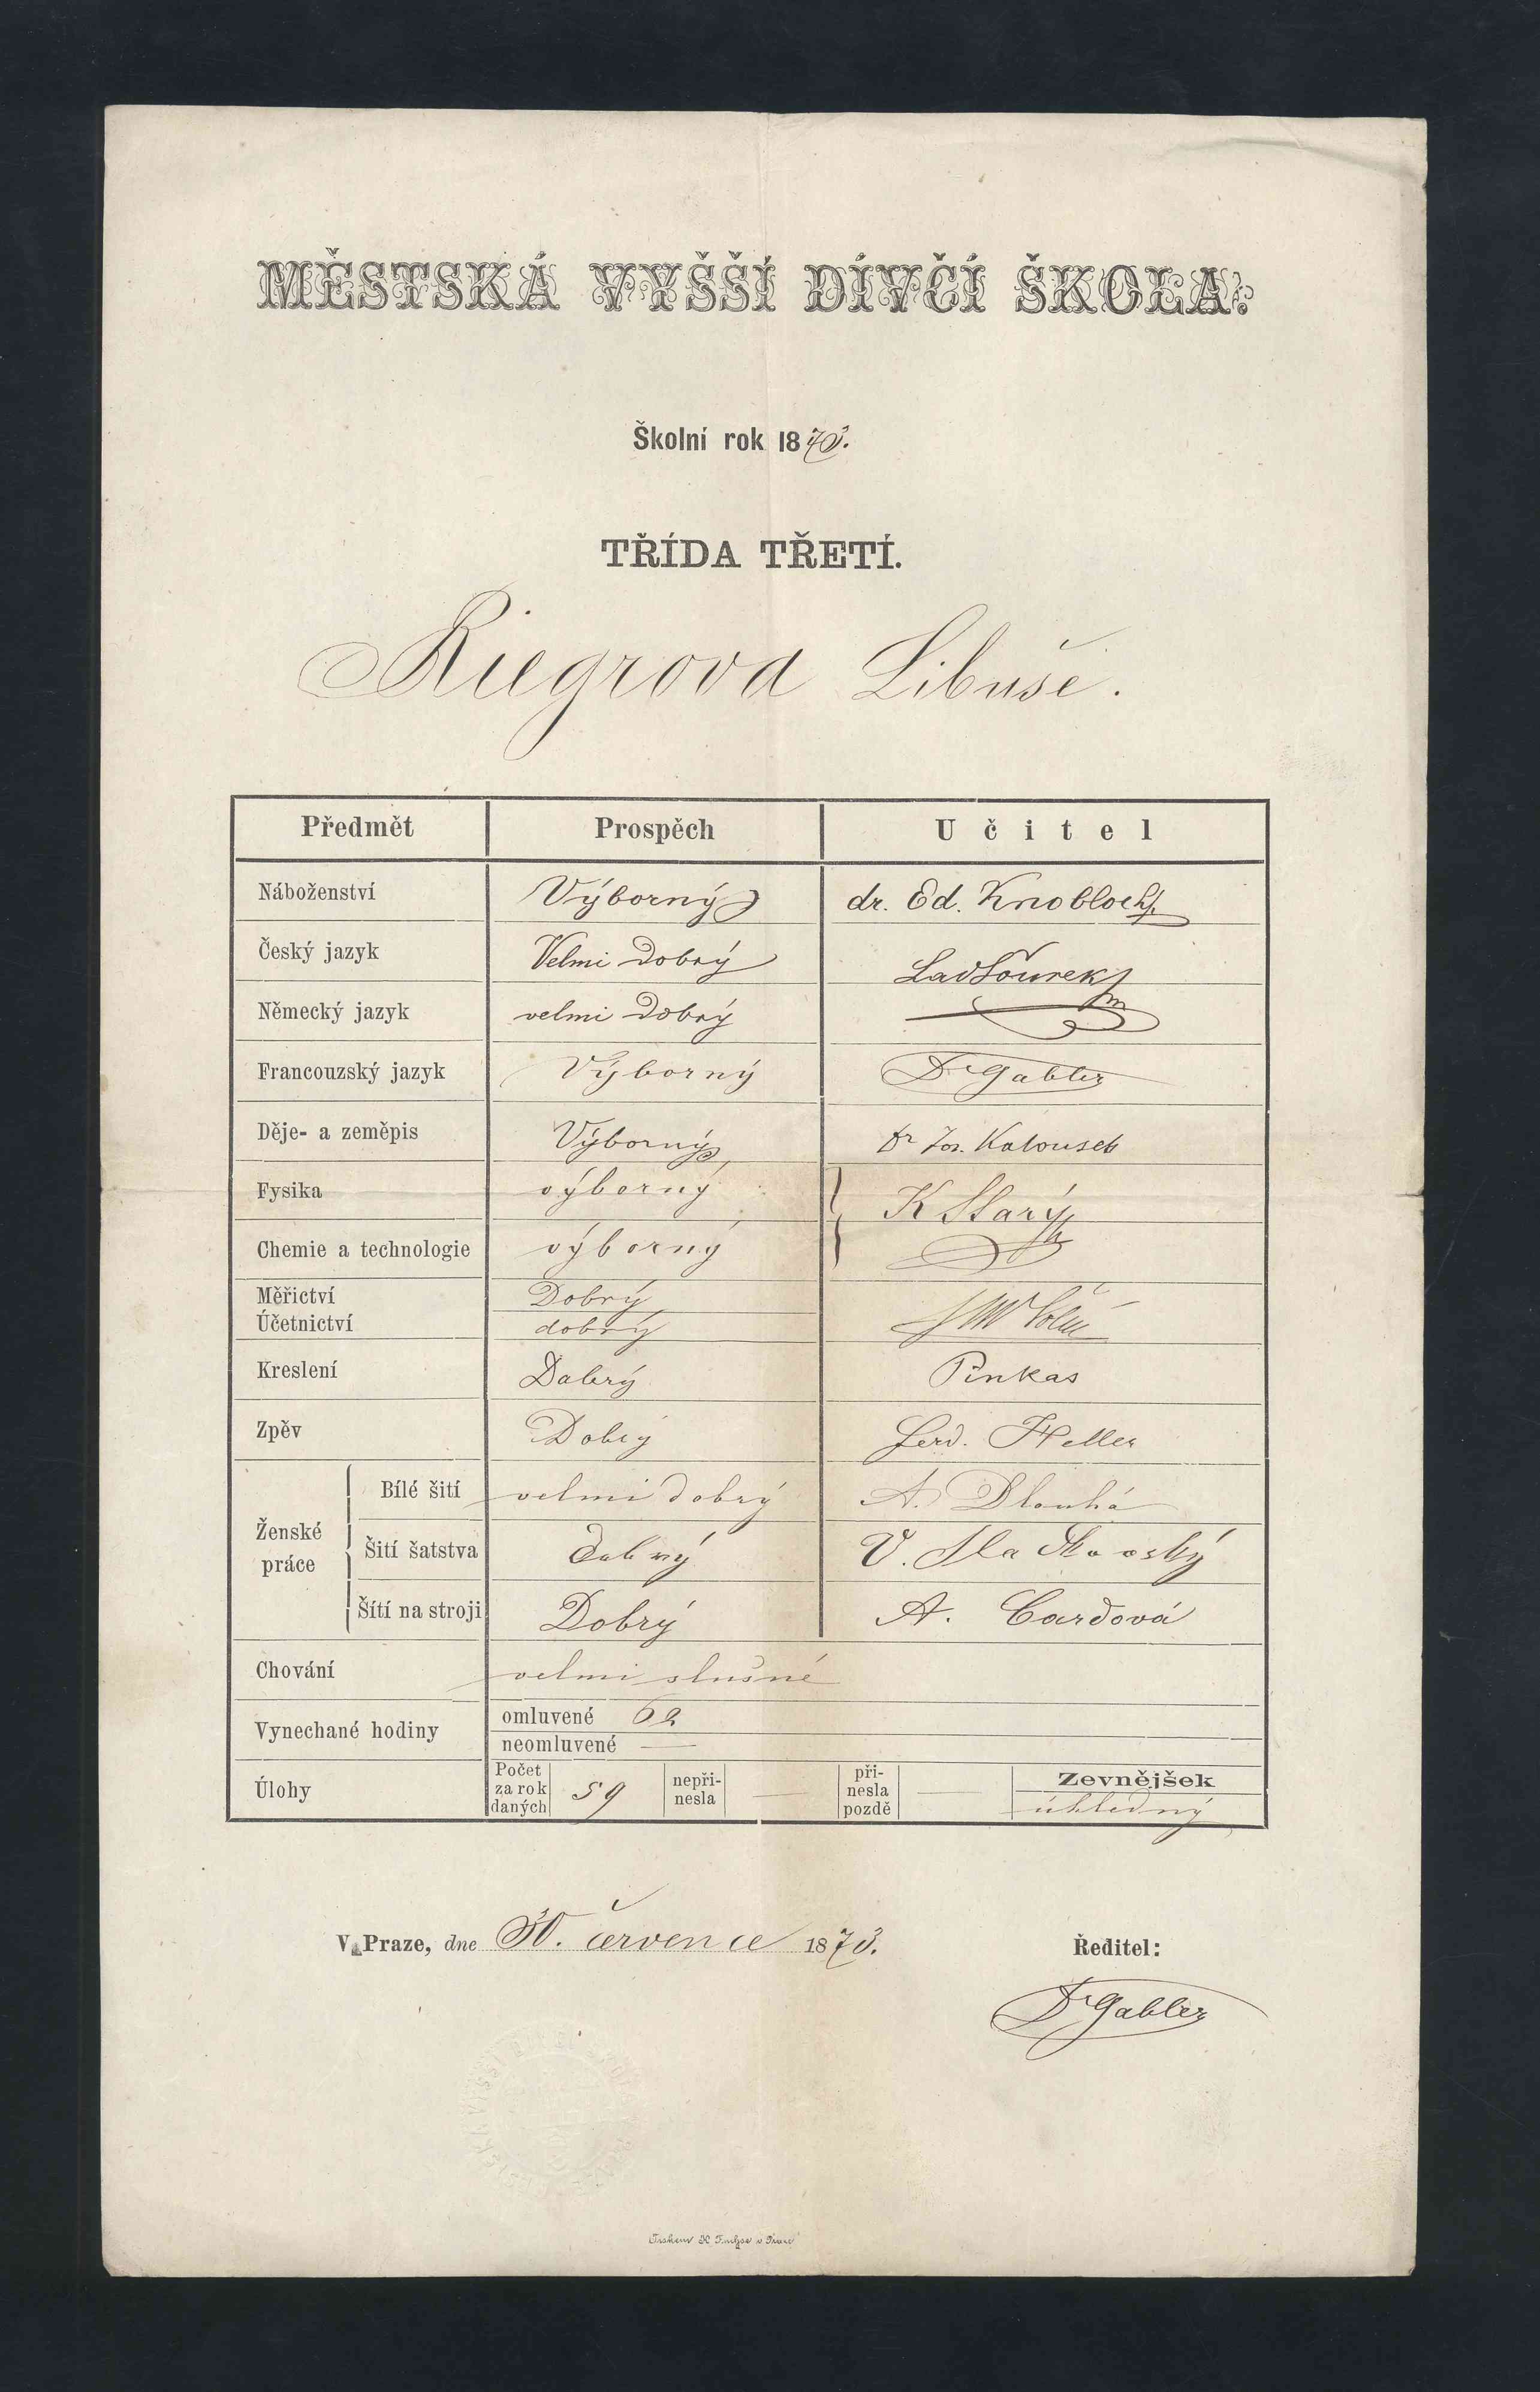 MĚSTSKÁ VYŠŠÍ DÍVČÍ ŠKOLA.
Školní rok 1873.
TŘÍDA TŘETÍ.
Riegrova Libuše.
Předmět Prospěch Učitel
Náboženství Výborný dr. Ed. Knobloch
Český jazyk Velmi dobrý Lad Šourek
Německý jazyk velmi dobrý
Francouzský jazyk Výborný Dr Gabler
Děje- a zeměpis Výborný Dr Jos. Kalousek
Fysika výborný K Starý
Chemie a technologie výborný
Měřictví Dobrý
Účetnictví dobrý
Kreslení Dobrý Pinkas
Zpěv Dobrý Ferd. Heller
Ženské práce
Bílé šití velmi dobrý A. Dlouhá
Šití šatstva Dobrý V.
Šítí na stroji Dobrý A. Cardová
Chování velmi slušné
Vynechané hodiny omluvené 62
neomluvené —
Úlohy Počet za rok daných 59 nepřinesla — přinesla pozdě — Zevnějšek
úhledný
V Praze, dne 30. července 1873. Ředitel:
Dr Gabler